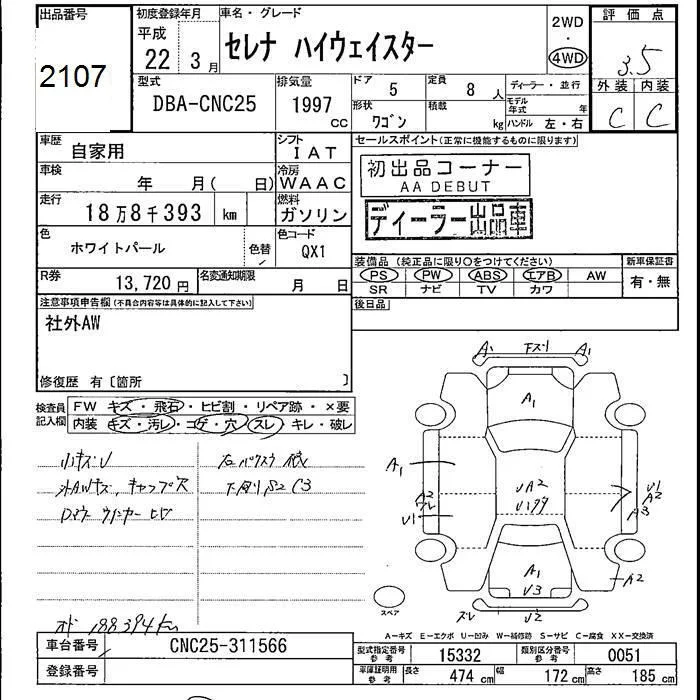 出品番号
2107
初度登録年月
平成
22 3月
車名・グレード
セレナ ハイウェイスター
2WD
・
4WD
評価点
3.5
外装 内装
C C
型式
DBA-CNC25
排気量
1997
CC
ドア 5
定員 8 人
形状 ワゴン
積載 kg
ディーラー・並行
モデル年式 年
ハンドル 左・右
車歴 自家用
シフト IAT
車検 年 月( 日)
冷房 WAAC
走行 18万8千393 km
燃料 ガソリン
色 ホワイトパール
色替
色コード QX1
R券 13,720 円
名変通知期限 月 日
セールスポイント(正常に機能するものに限ります)
初出品コーナー
AA DEBUT
ディーラー出品車
装備品 (純正品に限り〇をつけてください)
新車保証書
PS PW ABS エアB AW
SR ナビ TV カワ
有・無
注意事項申告欄 (不具合内容等は具体的に記入して下さい)
社外AW
修復歴 有〔箇所 〕
後日品
検査員記入欄
FW キズ・飛石・ヒビ割・リペア跡・×要
内装 キズ・汚レ・コゲ・穴・スレ・キレ・破レ
小キズU
外AWキズ、キャップ欠
下廻りS2 C3
188394km
A1 下スリ A1
A1
A1
A2
U1
UA2
U1
A2
A3
A1
U3
A2
ズレ U2
スペア
A-キズ E-エクボ U-凹み W-補修跡 S-サビ C-腐食 XX-交換済
車台番号 CNC25-311566
登録番号
型式指定番号 参考 15332
類別区分番号 参考 0051
車庫証明用 参考 長さ 474 cm 幅 172 cm 高さ 185 cm